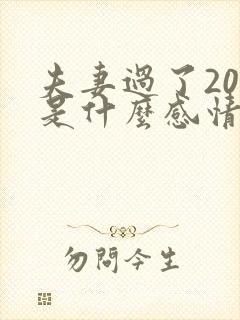 夫妻過了20
是什麼感情
勿問今生